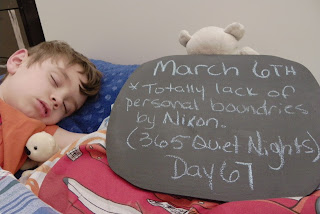 March 6TH
* Totally lack of
personal boundries
by Nixon.
(365 Quet Nights)
Day 67